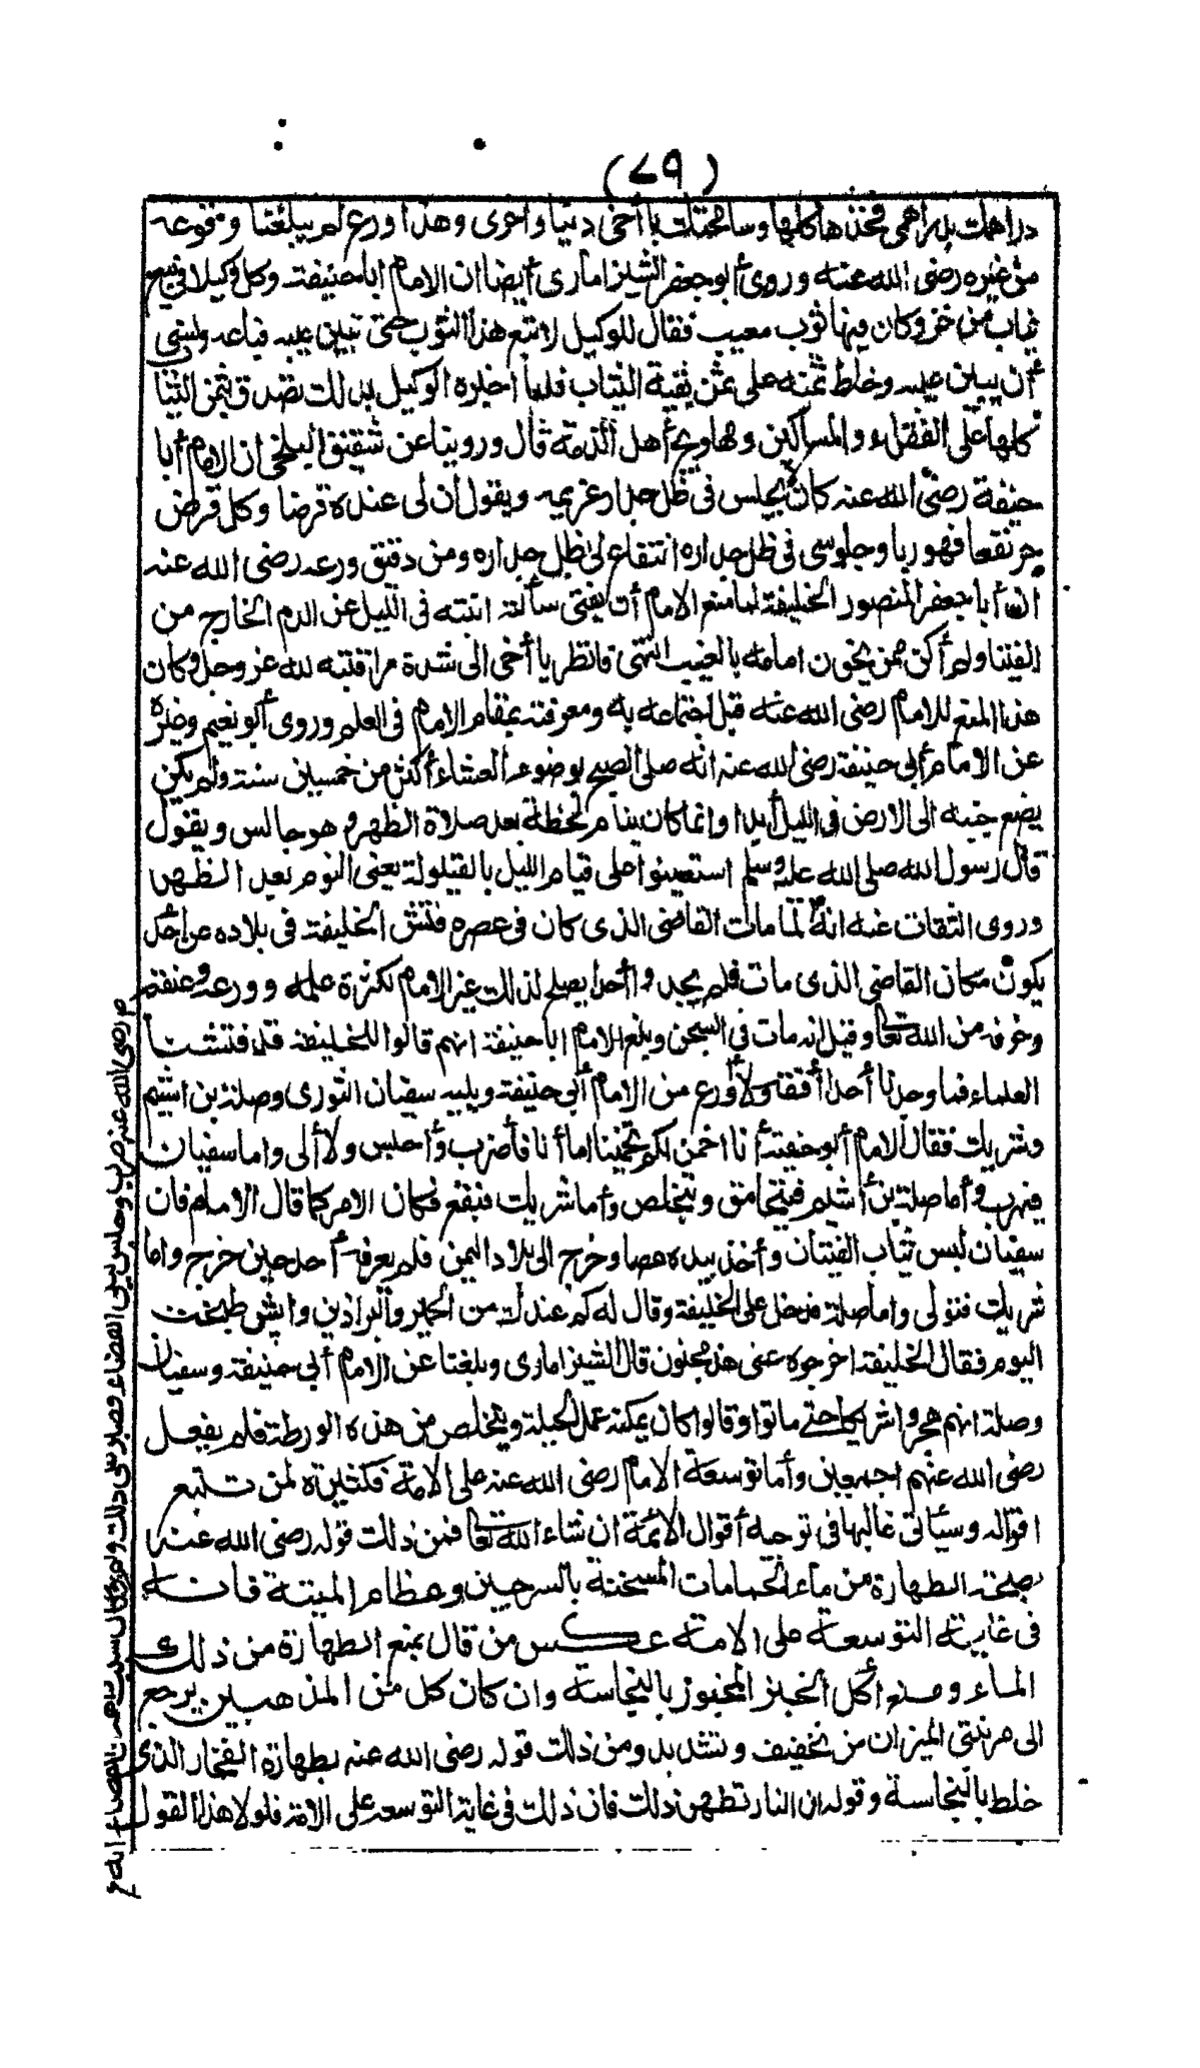 (٧٩)
دراهمك بدراهمي فخذها كلها وسامحتك يا أخي دنيا وأخرى وهذا ورع لم يبلغنا وقوعه
من غيره رضي الله عنه وروى أبو جعفر الشيزاماري أيضا ان الامام أبا حنيفة وكل وكيلا في بيع
ثياب من خز وكان فيها ثوب معيب فقال للوكيل لا تبع هذا الثوب حتى تبين عيبه فباعه ونسي
أن يبين عيبه وخلط ثمنه على ثمن بقية الثياب فلما أخبره الوكيل بذلك تصدق بثمن الثياب
كلها على الفقراء والمساكين ومحاويج أهل الذمة قال وروينا عن شقيق البلخي ان الامام أبا
حنيفة رضي الله عنه كان لا يجلس في ظل جدار غريمه ويقول ان لي عنده قرضا وكل قرض
جر نفعا فهو ربا وجلوسي في ظل جداره انتفاع لي بظل جداره ومن دقيق ورعه رضي الله عنه
ان أبا جعفر المنصور الخليفة لما منع الامام أن يفتي سألته ابنته في الليل عن الدم الخارج من
الفتيا ولم أكن ممن يخون امامه بالغيب انتهى فانظر يا أخي الى شدة مراقبته لله عز وجل وكان
هذا المنع للامام رضي الله عنه قبل اجتماعه به ومعرفته بمقام الامام في العلم وروى أبو نعيم وغيره
عن الامام أبي حنيفة رضي الله عنه انه صلى الصبح بوضوء العشاء أكثر من خمسين سنة ولم يكن
يضع جنبه الى الارض في الليل أبدا وانما كان ينام لحظة بعد صلاة الظهر وهو جالس ويقول
قال رسول الله صلى الله عليه وسلم استعينوا على قيام الليل بالقيلولة يعني النوم بعد الظهر
وروى الثقات عنه انه لما مات القاضي الذي كان في عصره فتش الخليفة في بلاده عن أحد
يكون مكان القاضي الذي مات فلم يجدوا أحدا يصلح لذلك غير الامام لكثرة علمه وورعه وعفته
وخوفه من الله تعالى وقيل انه مات في السجن وبلغ الامام ابا حنيفة انهم قالوا للخليفة قد فتشنا
العلماء فما وجدنا أحدا أفقه ولا أورع من الامام أبي حنيفة ويليه سفيان الثوري وصلة بن اشيم
وشريك فقال الامام أبو حنيفة أنا اخمن لكم تخمينا اما أنا فأضرب وأحبس ولا ألي واما سفيان
فيهرب وأما صلة بن أشيم فيتحامق ويتخلص وأما شريك فيقع فكان الامر كما قال الامام فان
سفيان لبس ثياب الفتيان وأخذ بيده عصا وخرج الى بلاد اليمن فلم يعرفه أحد حين خرج واما
شريك فتولى واما صلة فدخل على الخليفة وقال له كم عندك من الحمير والبراذين وايش طبخت
اليوم فقال الخليفة اخرجوه عني هذا مجنون قال الشيزاماري وبلغنا عن الامام أبي حنيفة وسفيان
وصلة انهم هجروا شريكا حتى ماتوا وقالوا كان يمكنه عمل الحيلة ويتخلص من هذه الورطة فلم يفعل
رضي الله عنهم اجمعين وأما توسعة الامام رضي الله عنه على الامة فكثيرة لمن تتبع
اقواله وسيأتي غالبها في توجيه أقوال الائمة ان شاء الله تعالى فمن ذلك قوله رضي الله عنه
بصحة الطهارة من ماء الحمامات المسخنة بالسرجين وعظام الميتة فانه
في غاية التوسعة على الامة عكس من قال بمنع الطهارة من ذلك
الماء ومنع أكل الخبز المخبوز بالنجاسة وان كان كل من المذهبين يرجع
الى مرتبتي الميزان من تخفيف وتشديد ومن ذلك قوله رضي الله عنه بطهارة الفخار الذي
خلط بالنجاسة وقوله ان النار تطهر ذلك فان ذلك في غاية التوسعة على الامة فلولا هذا القول
رضي الله عنه ضرب وحبس ليلي القضاء فصبر على ذلك ولم